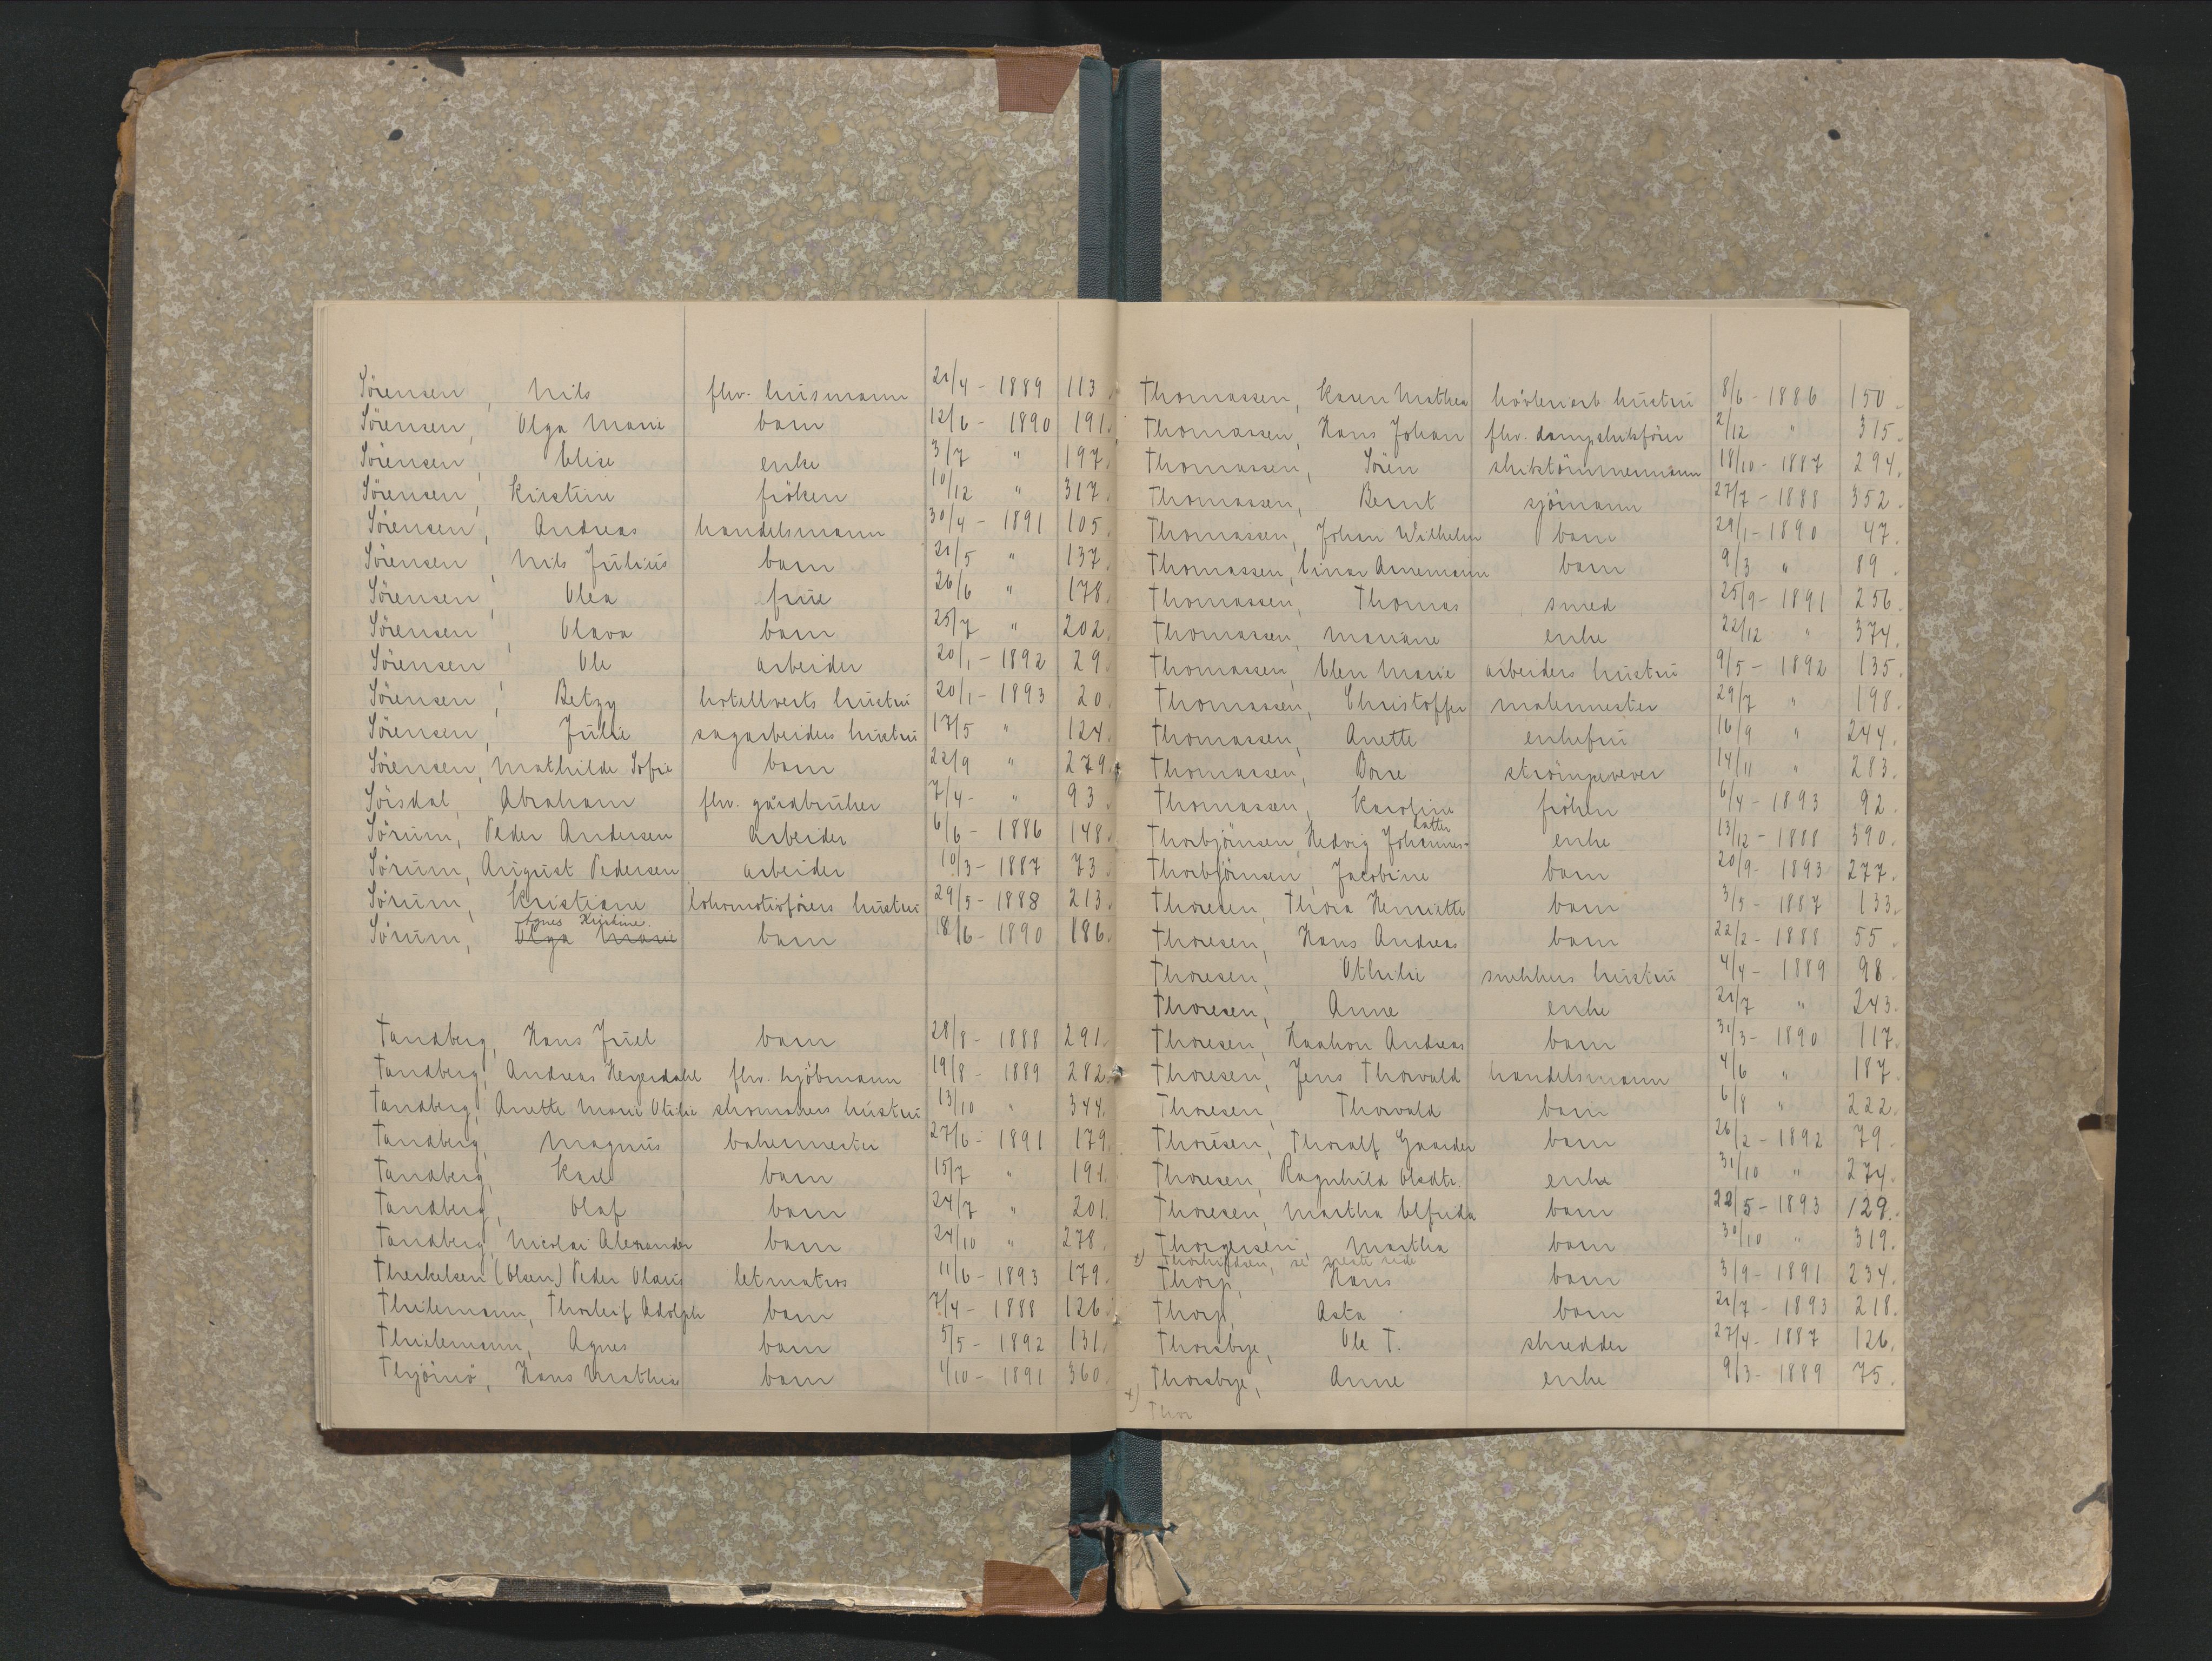 Sörensen, Nils flv. husmann 21/4 - 1889 113.
Sörensen, Olga Marie barn 12/6 - 1890 191.
Sörensen, Elise enke 3/7 " 197.
Sörensen, Kirstine fröken 10/12 " 317.
Sörensen, Andreas handelsmann 30/4 - 1891 105.
Sörensen, Nils Julius barn 21/5 " 137.
Sörensen, Olea frue 26/6 " 178.
Sörensen, Olava barn 25/7 " 202.
Sörensen Ole arbeider 20/1 - 1892 29.
Sörensen, Betzy hotellverts hustru 20/1 - 1893 20.
Sörensen, Julie sagarbeiders hustru 17/5 " 124.
Sörensen, Mathilde Sofie barn 22/9 " 279.
Sörsdal, Abraham flv. gårdbruker 7/4 - " 93.
Sörum, Peder Andersen arbeider 6/6 - 1886 148.
Sörum, August Pedersen arbeider 10/3 - 1887 73.
Sörum, Kristiane lokomotivförers hustru 29/5 - 1888 213.
Agnes Kirstine.
Sörum, Olga Marie barn 18/6 - 1890 186.
Tandberg, Hans Juel barn 28/8 - 1888 291.
Tandberg, Andreas Heyerdahl flv. kjöbmann 19/8 - 1889 282.
Tandberg, Anette Marie Otilie skomakers hustru 13/10 " 344.
Tandberg, Magnus bakermester 27/6 - 1891 179.
Tandberg, Karl barn 15/7 " 191.
Tandberg, Olaf barn 24/7 " 201.
Tandberg, Nicolai Alexander barn 24/10 " 278.
Therkelsen (Olsen) Peder Olaus letmatros 11/6 - 1893 179.
Thilemann, Thorleif Adolph barn 7/4 - 1888 126.
Thilemann, Agnes barn 5/5 - 1892 131.
Thjömö, Hans Mathias barn 4/10 - 1891 360.
Thomassen, Karen Mathea hövleriarb. hustru 8/6 - 1886 150.
Thomassen, Hans Johan flv. dampskibsförer 2/12 " 315.
Thomassen, Sören skibstömmermann 18/10 - 1887 294.
Thomassen, Bernt sjömann 27/7 - 1888 352.
Thomassen, Johan Wilhelm barn 29/1 - 1890 47.
Thomassen, Einar Annemann barn 9/3 " 89.
Thomassen, Thomas smed 25/9 - 1891 256.
Thomassen, Mariane enke 22/12 " 374.
Thomassen, Elen Marie arbeiders hustru 9/5 - 1892 135.
Thomassen, Christoffer malermester 29/7 " 198.
Thomassen, Anette enkefru 16/9 " 244.
Thomassen, Borre strömpevever 14/11 " 283.
Thomassen, Karoline fröken 6/4 - 1893 92.
datter
Thorbjörnsen, Hedvig Johannes- enke 13/12 - 1888 390.
Thorbjörnsen, Jacobine barn 20/9 - 1893 277.
Thoresen, Thora Henriette barn 3/5 - 1887 133.
Thoresen, Hans Andreas barn 22/2 - 1888 55.
Thoresen, Othilie snekkers hustru 4/4 - 1889 98.
Thoresen, Anne enke 21/7 " 243.
Thoresen, Haakon Andreas barn 31/3 - 1890 117.
Thoresen, Jens Thorvald handelsmann 4/6 " 187.
Thoresen, Thorvald barn 6/8 " 222.
Thoresen, Thoralf Gaarder barn 26/2 - 1892 79.
Thoresen, Ragnhild Olsdtr. enke 31/10 " 274.
Thoresen, Martha Elfrida barn 22/5 - 1893 129.
Thorgersen, Martha barn 30/10 " 319.
x) Thorkildsen, se neste side
Thorp, Hans barn 3/9 - 1891 234.
Thorp, Asta barn 21/7 - 1893 218.
Thorsbye, Ole T. skredder 27/4 - 1887 126.
Thorsbye, Anne enke 9/3 - 1889 75.
x) Thor